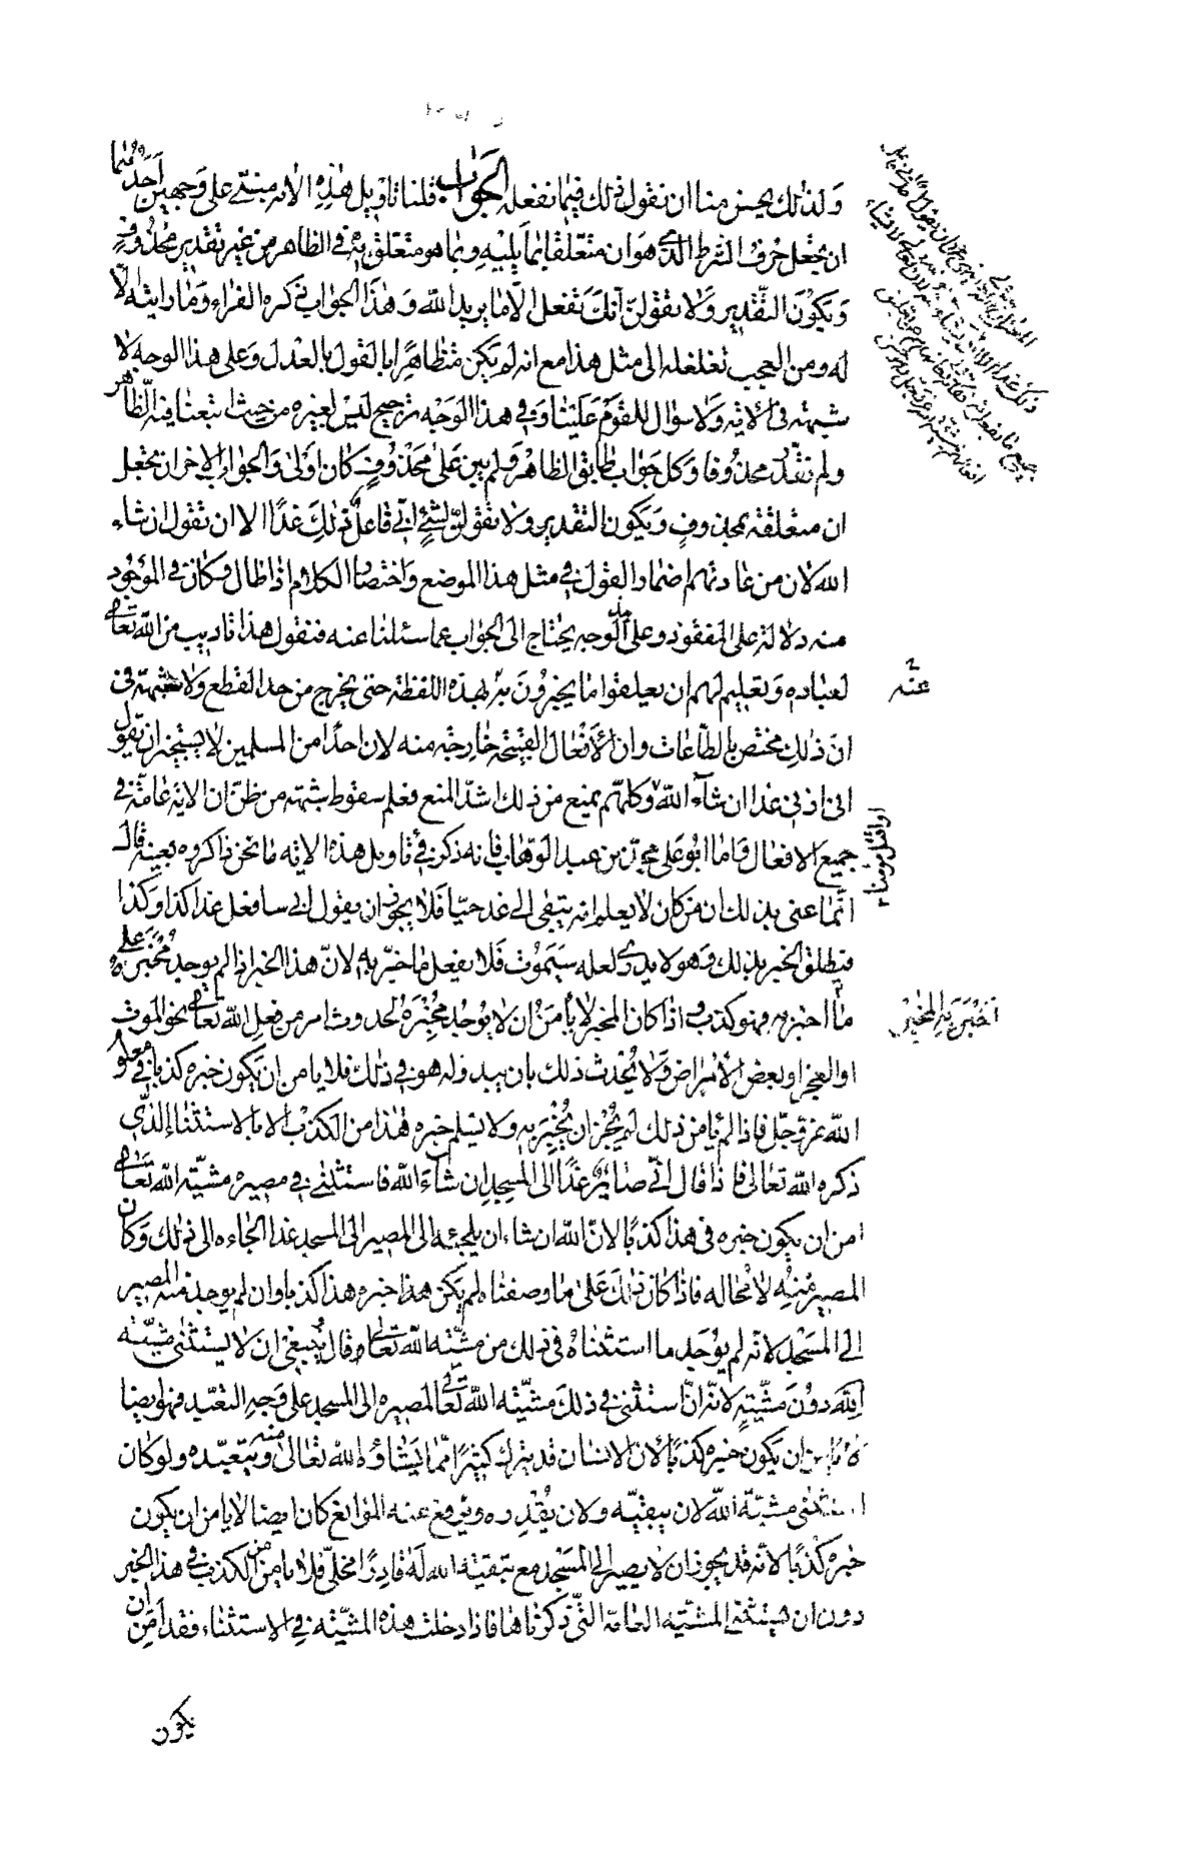 ولذلك يحسن منا ان نقول ذلك فيما نفعله الجواب قلنا تاويل هذه الاية مبنى على وجهين احدهما
ان يجعل حرف الشرط الذى هو ان متعلقا بما يليه وبما هو متعلق به فى الظاهر من غير تقدير محذوف
ويكون التقدير ولا تقولن انك تفعل الا ما يريد الله وهذا الجواب ذكره الفراء وما رايته الا
له ومن العجيب تغلغله الى مثل هذا مع انه لم يكن متظاهرا بالقول بالعدل وعلى هذا الوجه لا
شبهة فى الاية ولا سؤال للقوم علينا وفى هذا الوجه ترجيح ليس لغيره من حيث اتبعنا فيه الظاهر
ولم نقدر محذوفا وكل جواب طابق الظاهر ولم يبن على محذوف كان اولى والجواب الاخر ان يجعل
ان متعلقة بمحذوف ويكون التقدير ولا تقولن لشئ انى فاعل ذلك غدا الا ان تقول ان شاء
الله لان من عادتهم اضمار القول فى مثل هذا الموضع واختصار الكلام اذا طال وكان فى الموجود
منه دلالة على المفقود وعلى هذا الوجه يحتاج الى الجواب عما سئلنا عنه فنقول هذا تاديب من الله تعالى
لعباده وتعليم لهم ان يعلقوا ما يخبرون به بهذه اللفظة حتى يخرج من حد القطع ولا شبهة فى
عنه
ان ذلك مختص بالطاعات وان الافعال القبيحة خارجة منه لان احدا من المسلمين لا يستجيز ان يقول
انى اذنى غدا ان شاء الله وكلهم يمنع من ذلك اشد المنع فعلم سقوط شبهة من ظن ان الاية عامة فى
جميع الافعال فاما ابو على محمد بن عبد الوهاب فانه ذكر فى تاويل هذه الاية ما نحن ذاكروه بعينه قال
انما عنى بذلك ان من كان لا يعلم انه يبقى الى غد حيا فلا يجوز ان يقول انى سافعل غدا كذا وكذا
فيطلق الخبر بذلك وهو لا يدرى لعله سيموت فلا يفعل ما خبر به لان هذا الخبر اذا لم يوجد مخبره على
ما اخبر به فهو كذب واذا كان المخبر لا يأمن ان لا يوجد مخبره لحدوث امر من فعل الله تعالى نحو الموت
اخبر به المخبر
او العجز او بعض الامراض ولا يحدث ذلك بان يبدو له هو فى ذلك فلا يامن ان يكون خبره كذبا فى معلوم
الله عز وجل فاذا لم يأمن ذلك لم يجز ان يخبر به ولا يسلم خبره هذا من الكذب الا بالاستثناء الذى
ذكره الله تعالى فاذا قال انى صائر غدا الى المسجد ان شاء الله فاستثنى فى مصيره مشية الله تعالى
امن ان يكون خبره فى هذا كذبا لان الله ان شاء ان يلجئه الى المصير الى المسجد غدا الجاءه الى ذلك وكان
المصير منه لا محالة فاذا كان ذلك على ما وصفناه لم يكن هذا خبره هذا كذبا وان لم يوجد منه المصير
الى المسجد لانه لم يوجد ما استثناه فى ذلك من مشية الله تعالى وقال ينبغى ان لا يستثنى مشية
الله دون مشية لانه ان استثنى فى ذلك مشية الله تعالى لمصيره الى المسجد على وجه التعبد فهو ايضا
لا يأمن ان يكون خبره كذبا لان الانسان قد يترك كثيرا مما يشاؤه الله تعالى منه ويتعبده ولو كان
استثنى مشية الله لان يبقيه ولان يقدره ويرفع عنه الموانع كان ايضا لا يامن ان يكون
خبره كذبا لانه قد يجوز ان لا يصير الى المسجد مع تبقية الله له قادرا مخلى فلا يامن من الكذب فى هذا الخبر
دون ان يستثنى المشية العامة التى ذكرناها فاذا دخلت هذه المشية فى الاستثناء فقد امن ان
يكون